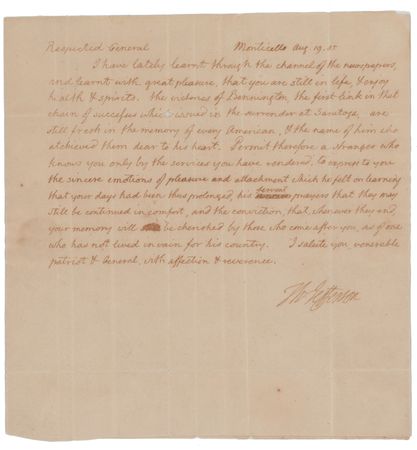 Respected General Monticello Aug. 19. 15
I have lately learnt through the channel of the newspapers,
and learnt with great pleasure, that you are still in life, & enjoy
health & spirits. the victories of Bennington, the first link in that
chain of successes which issued in the surrender at Saratoga, are
still fresh in the memory of every American, & the name of him who
atchieved them dear to his heart. Permit therefore a stranger who
knows you only by the services you have rendered, to express to you
the sincere emotions of pleasure and attachment which he felt on learning
that your days had been thus prolonged, his fervent prayers that they may
still be continued in comfort, and the conviction, that whenever they end,
your memory will be cherished by those who come after you, as of one
who has not lived in vain for his country. I salute you, venerable
patriot & General, with affection & reverence.
Th Jefferson